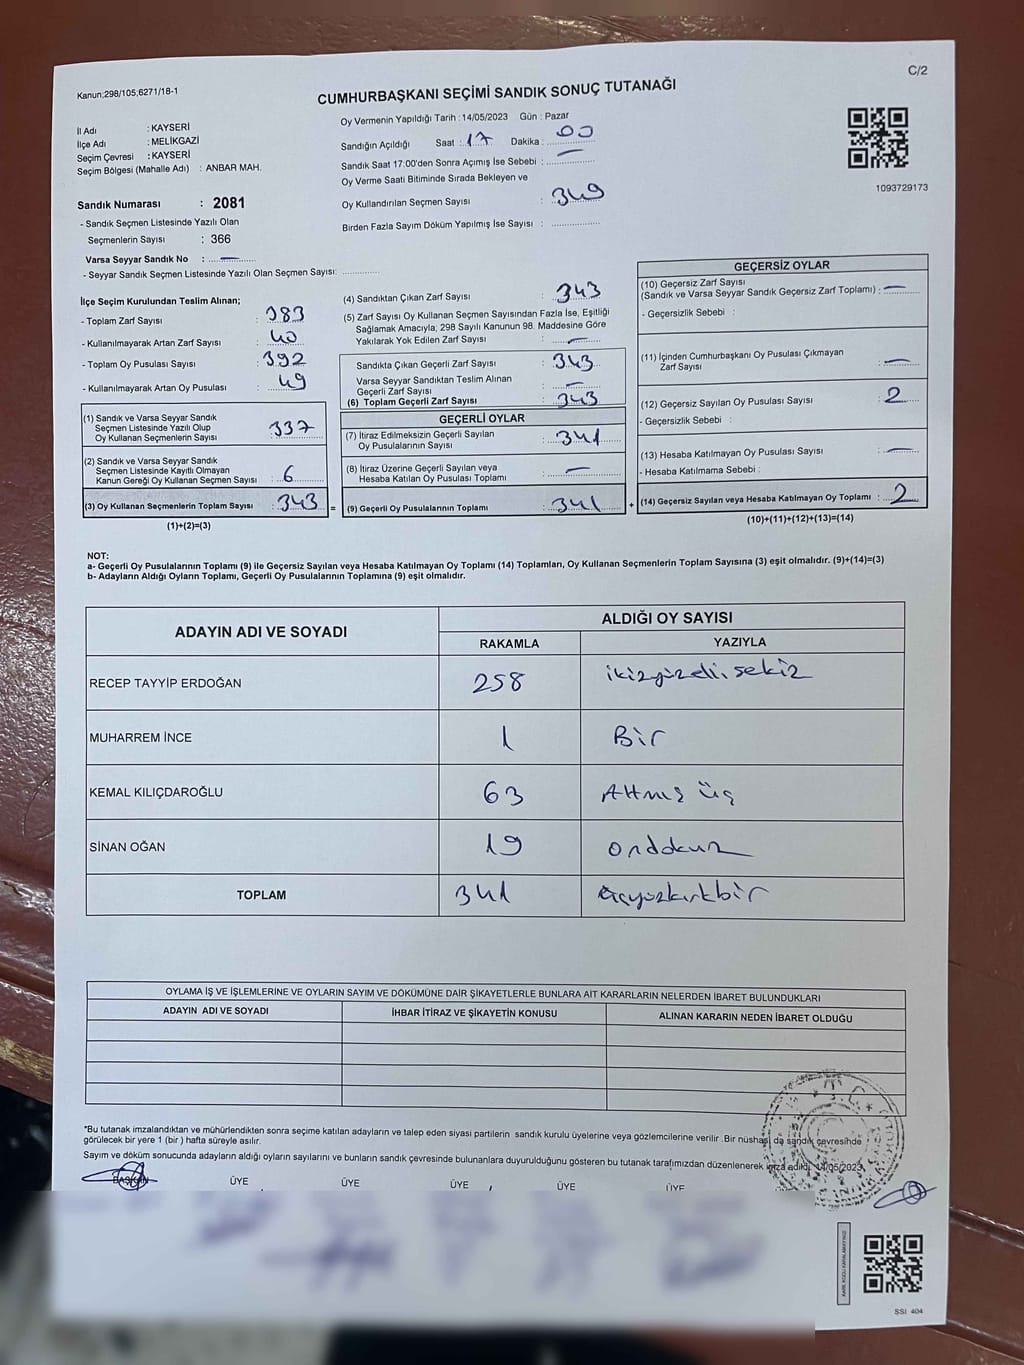 C/2
Kanun;298/105;6271/18-1
CUMHURBAŞKANI SEÇİMİ SANDIK SONUÇ TUTANAĞI
İl Adı : KAYSERİ
İlçe Adı : MELİKGAZİ
Seçim Çevresi : KAYSERİ
Seçim Bölgesi (Mahalle Adı) : ANBAR MAH.
Sandık Numarası : 2081
- Sandık Seçmen Listesinde Yazılı Olan
Seçmenlerin Sayısı : 366
Varsa Seyyar Sandık No : —
- Seyyar Sandık Seçmen Listesinde Yazılı Olan Seçmen Sayısı:
Oy Vermenin Yapıldığı Tarih : 14/05/2023 Gün : Pazar
Sandığın Açıldığı Saat : 17 Dakika : 00
Sandık Saat 17:00'den Sonra Açımış İse Sebebi : —
Oy Verme Saati Bitiminde Sırada Bekleyen ve
Oy Kullandırılan Seçmen Sayısı : 349
Birden Fazla Sayım Döküm Yapılmış İse Sayısı :
1093729173
İlçe Seçim Kurulundan Teslim Alınan;
- Toplam Zarf Sayısı : 383
- Kullanılmayarak Artan Zarf Sayısı : 40
- Toplam Oy Pusulası Sayısı : 392
- Kullanılmayarak Artan Oy Pusulası : 49
(1) Sandık ve Varsa Seyyar Sandık
Seçmen Listesinde Yazılı Olup
Oy Kullanan Seçmenlerin Sayısı : 337
(2) Sandık ve Varsa Seyyar Sandık
Seçmen Listesinde Kayıtlı Olmayan
Kanun Gereği Oy Kullanan Seçmen Sayısı : 6
(3) Oy Kullanan Seçmenlerin Toplam Sayısı : 343
(1)+(2)=(3)
(4) Sandıktan Çıkan Zarf Sayısı : 343
(5) Zarf Sayısı Oy Kullanan Seçmen Sayısından Fazla İse, Eşitliği
Sağlamak Amacıyla; 298 Sayılı Kanunun 98. Maddesine Göre
Yakılarak Yok Edilen Zarf Sayısı : —
Sandıkta Çıkan Geçerli Zarf Sayısı : 343
Varsa Seyyar Sandıktan Teslim Alınan
Geçerli Zarf Sayısı : —
(6) Toplam Geçerli Zarf Sayısı : 343
GEÇERLİ OYLAR
(7) İtiraz Edilmeksizin Geçerli Sayılan
Oy Pusulalarının Sayısı : 341
(8) İtiraz Üzerine Geçerli Sayılan veya
Hesaba Katılan Oy Pusulası Toplamı : —
= (9) Geçerli Oy Pusulalarının Toplamı : 341
GEÇERSİZ OYLAR
(10) Geçersiz Zarf Sayısı
(Sandık ve Varsa Seyyar Sandık Geçersiz Zarf Toplamı) : —
- Geçersizlik Sebebi :
(11) İçinden Cumhurbaşkanı Oy Pusulası Çıkmayan
Zarf Sayısı : —
(12) Geçersiz Sayılan Oy Pusulası Sayısı : 2
- Geçersizlik Sebebi :
(13) Hesaba Katılmayan Oy Pusulası Sayısı : —
- Hesaba Katılmama Sebebi :
+ (14) Geçersiz Sayılan veya Hesaba Katılmayan Oy Toplamı : 2
(10)+(11)+(12)+(13)=(14)
NOT:
a- Geçerli Oy Pusulalarının Toplamı (9) ile Geçersiz Sayılan veya Hesaba Katılmayan Oy Toplamı (14) Toplamları, Oy Kullanan Seçmenlerin Toplam Sayısına (3) eşit olmalıdır. (9)+(14)=(3)
b- Adayların Aldığı Oyların Toplamı, Geçerli Oy Pusulalarının Toplamına (9) eşit olmalıdır.
ADAYIN ADI VE SOYADI
ALDIĞI OY SAYISI
RAKAMLA YAZIYLA
RECEP TAYYİP ERDOĞAN 258 ikizyüzelli, sekiz
MUHARREM İNCE 1 Bir
KEMAL KILIÇDAROĞLU 63 Altmış üç
SİNAN OĞAN 19 ondokuz
TOPLAM 341 üçyüzkırkbir
OYLAMA İŞ VE İŞLEMLERİNE VE OYLARIN SAYIM VE DÖKÜMÜNE DAİR ŞİKAYETLERLE BUNLARA AİT KARARLARIN NELERDEN İBARET BULUNDUKLARI
ADAYIN ADI VE SOYADI İHBAR İTİRAZ VE ŞİKAYETİN KONUSU ALINAN KARARIN NEDEN İBARET OLDUĞU
*Bu tutanak imzalandıktan ve mühürlendikten sonra seçime katılan adayların ve talep eden siyasi partilerin sandık kurulu üyelerine veya gözlemcilerine verilir. Bir nüshası da sandık çevresinde
görülecek bir yere 1 (bir) hafta süreyle asılır.
Sayım ve döküm sonucunda adayların aldığı oyların sayılarını ve bunların sandık çevresinde bulunanlara duyurulduğunu gösteren bu tutanak tarafımızdan düzenlenerek imza edildi. 14/05/2023
BAŞKAN ÜYE ÜYE ÜYE ÜYE ÜYE
SSI 404